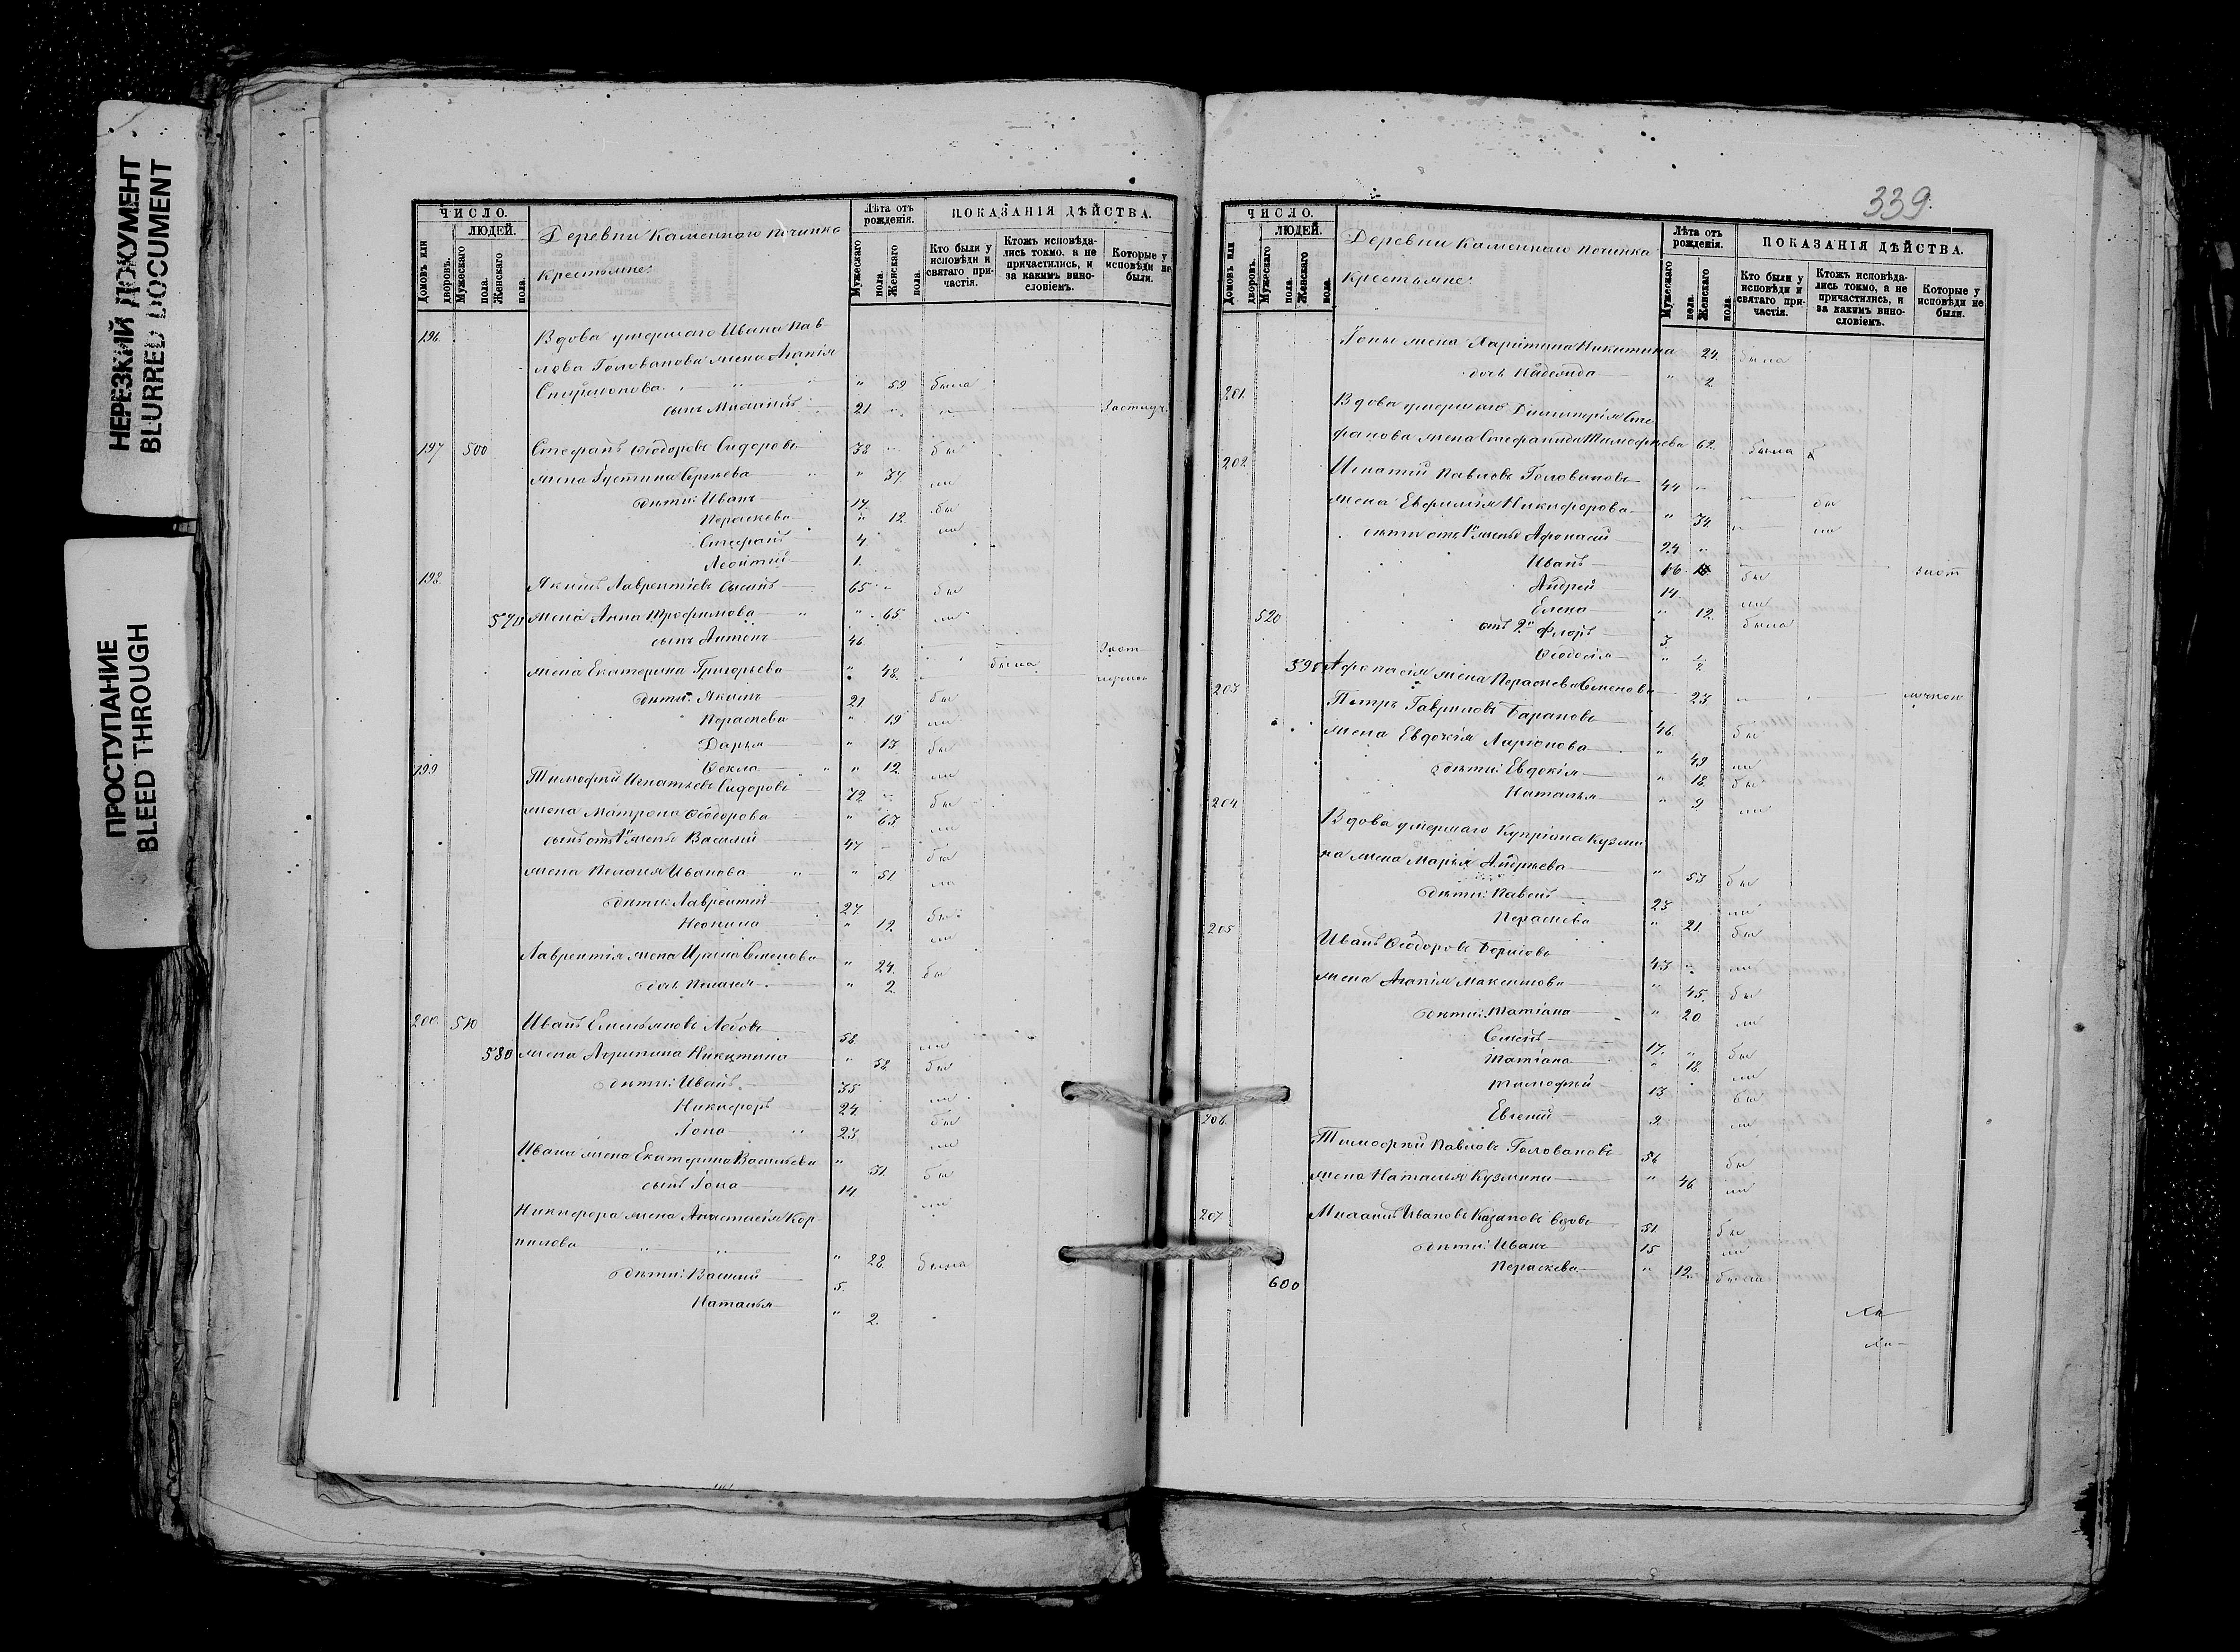 НЕРЕЗКИЙ ДОКУМЕНТ
BLURRED DOCUMENT
ПРОСТУПАНИЕ
BLEED THROUGH
ЧИСЛО.
ЛЮДЕЙ.
Домовъ или дворовъ.
Мужескаго пола.
Женскаго пола.
Деревни Каменнаго починка
Крестьяне:
Лѣта отъ рожденія.
Мужескаго пола.
Женскаго пола.
ПОКАЗАНІЯ ДѢЙСТВА.
Кто были у исповѣди и святаго причастія.
Ктожъ исповѣдались токмо, а не причастились, и за какимъ винословіемъ.
Которые у исповѣди не были.
196. Вдова умершаго Ивана Пав-
лова Голованова жена Агапія
Спиридонова " 59 была
сынъ 21
197 500 Стефанъ Ѳеодоровъ Сидоровъ 38 бы
жена Густина Сергѣева " 37 ли
дѣти: Иванъ 17. бы
Параскева " 12. ли
Стефанъ 4.
Леонтій 1.
198. Якимъ Лаврентіевъ 65 бы
570 жена Анна Трофимова " 65 ли
сынъ Антонъ 46
жена Екатерина Григорьева " 48. была
дѣти: Якимъ 21 бы
Параскева " 19 ли
Дарья " 13 бы
Ѳекла " 12 ли
199 Тимофей Игнатьевъ Сидоровъ 72 бы
жена Матрона Ѳеодорова " 63 ли
сынъ отъ 1й жены Василій 47 бы
жена Пелагея Иванова " 51 ли
дѣти: Лаврентій 27. бы
" 12. ли
Лаврентія жена Ирина Семенова " 24. бы
дочь Пелагея " 2.
200. 510 Иванъ Емельяновъ Лобовъ 58 ли
580 жена Агрипина Никитина " 58 бы
дѣти: Иванъ 35 ли
Никифоръ 24 бы
Іона 23 ли
Ивана жена Екатерина Васильева " 31 бы
сынъ Іона 14 ли
Никифора жена Анастасія Кор-
нилова " 28. была
дѣти: Василій 5.
Наталья " 2.
339.
ЧИСЛО.
ЛЮДЕЙ.
Домовъ или дворовъ.
Мужескаго пола.
Женскаго пола.
Деревни Каменнаго починка
Крестьяне:
Лѣта отъ рожденія.
Мужескаго пола.
Женскаго пола.
ПОКАЗАНІЯ ДѢЙСТВА.
Кто были у исповѣди и святаго причастія.
Ктожъ исповѣдались токмо, а не причастились, и за какимъ винословіемъ.
Которые у исповѣди не были.
Іоны жена Харитина Никитина 24. была
дочь Надежда " 2
201. Вдова умершаго Димитрія Сте-
фанова жена Стефанида Тимофеева 62. была
202. Игнатій Павловъ Головановъ 44 бы
жена Евфимія Никифорова " 34. ли
дѣти отъ 1й жены Афонасій 24.
Иванъ 16. бы
Андрей 14. ли
Елена " 12. была
520 отъ 2й Флоръ 3.
Ѳеодосія "
590 Афонасія жена Параскева Семенова 23
203 Петръ Гавриловъ Барановъ 46. бы
жена Евдокія Ларіонова " 49 ли
дѣти: Евдокія " 18. бы
Наталья " 9 ли
204 Вдова умершаго Купріяна Кузми
на жена Марья Андреева " 53 бы
дѣти: Павелъ 23 ли
Параскева " 21. бы
205 Иванъ Ѳеодоровъ 43 ли
жена Агапія Максимова " 45. бы
дѣти: Татіана " 20 ли
Семенъ 17. бы
Татіана " 18. ли
Тимофей 13 бы
Евгеній 9. ли
206. Тимофей Павловъ Головановъ 56 бы
жена Наталья Кузмина " 46 ли
207. Ивановъ Казаковъ вдовъ 51. бы
дѣти: Иванъ 15 ли
Параскева " 12. была
600